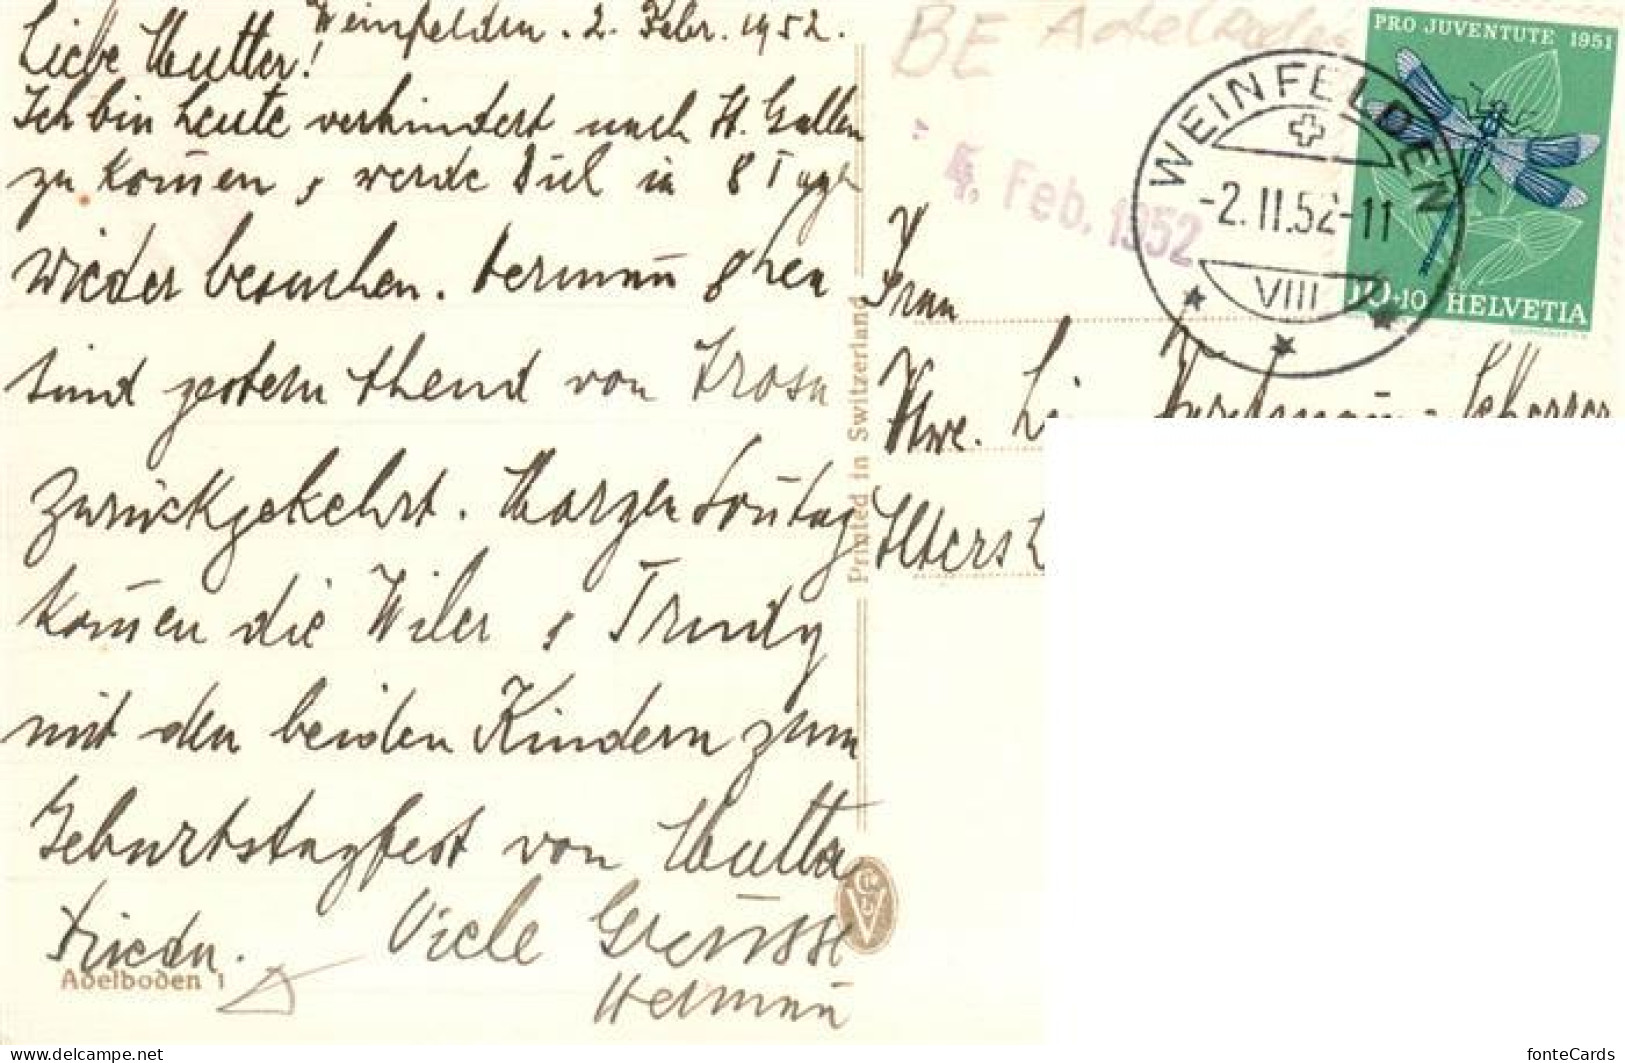 Weinfelden. 2. Febr. 1952.
Liebe Mutter!
Ich bin heute verhindert nach St. Gallen
zu kom̄en, werde Dich in 8 Tagen
wieder besuchen. Herman̄
sind gestern Abend von Arosa
zurückgekehrt. Morgen Son̄tag
kom̄en die Wiler & Trudy
mit den beiden Kindern zum
Geburtstagfest von Mutter
Frieda. Viele Grüsse
Herman̄
Adelboden 1
Printed in Switzerland
BE Adelboden
4. Feb. 1952
WEINFELDEN
-2.II.52-11
VIII
PRO JUVENTUTE 1951
10+10 HELVETIA
Frau
Wwe.
Scherrer
https://www.delcampe.net
fonteCards